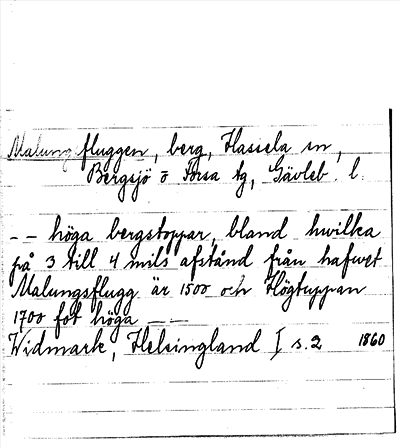 Malungsfluggen, berg, Hassela sn,
Bergsjö o Forsa tg, Gävleb. l.
-- höga bergstoppar, bland hwilka
på 3 till 4 mils afstånd från hafwet
Malungsflugg är 1500 och Högtuppan
1700 fot höga --
Widmark, Helsingland I s. 2 1860